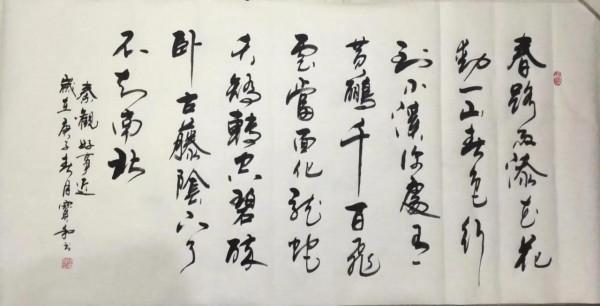 春路雨添花花
動一山春色行
到小溪深處有
黄鸝千百飛
雲當面化龍蛇
夭矯轉空碧醉
卧古藤陰下了
不知南北
秦觀 好事近
歲在庚子春月寶和書